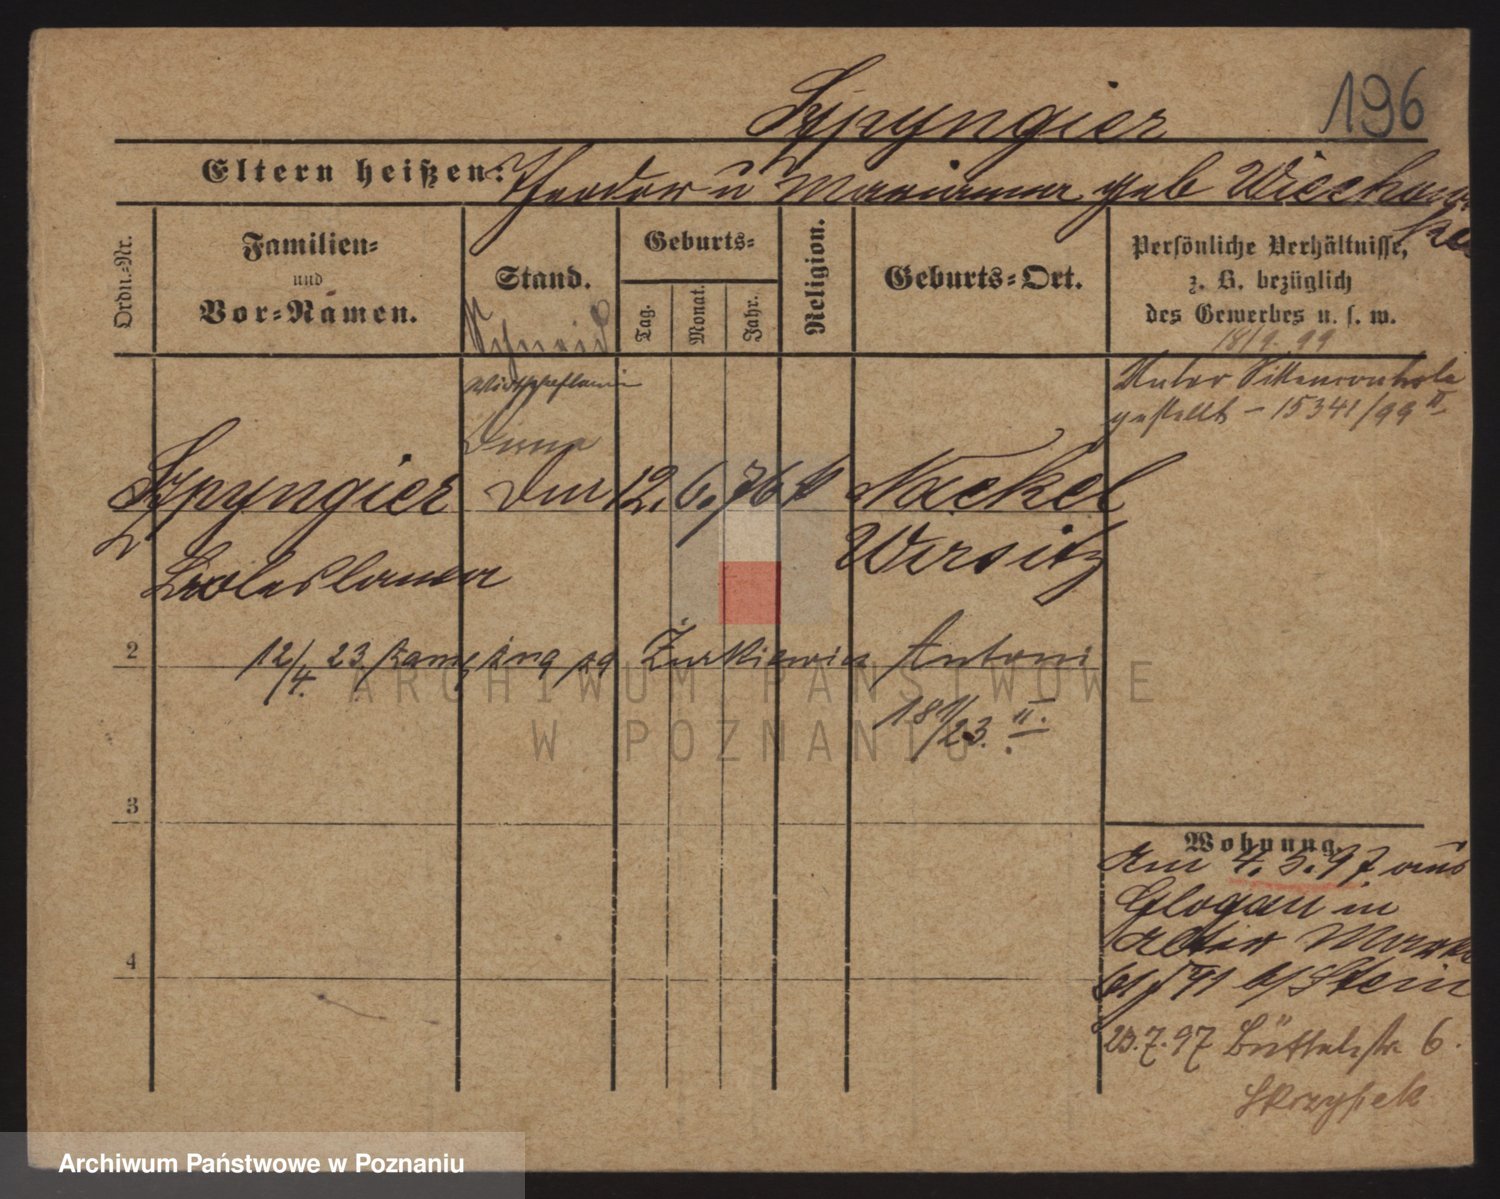 Szpyngier
196
Eltern heißen: Theodor u Marianna geb
Ordn.-Nr.
Familien-
und
Vor-Namen.
Stand.
Geburts-
Tag.
Monat.
Jahr.
Religion.
Geburts-Ort.
Persönliche Verhältnisse,
z. B. bezüglich
des Gewerbes u. s. w.
18/9. 99
Unter Sittencontrole
gestellt - 15341/99 II
Szpyngier
12. 6. 76 k Nackel
Wirsitz
Boleslawa
2
12/4. 23. Żurkiewicz Antoni
181/23. II.
3
4
Wohnung.
Am 4. 5. 97 aus
Glogau in
Alter Markt
b/ Stein
23. 7. 97 Büttelstr 6.
Skrzypek
ARCHIWUM PAŃSTWOWE
W POZNANIU
Archiwum Państwowe w Poznaniu